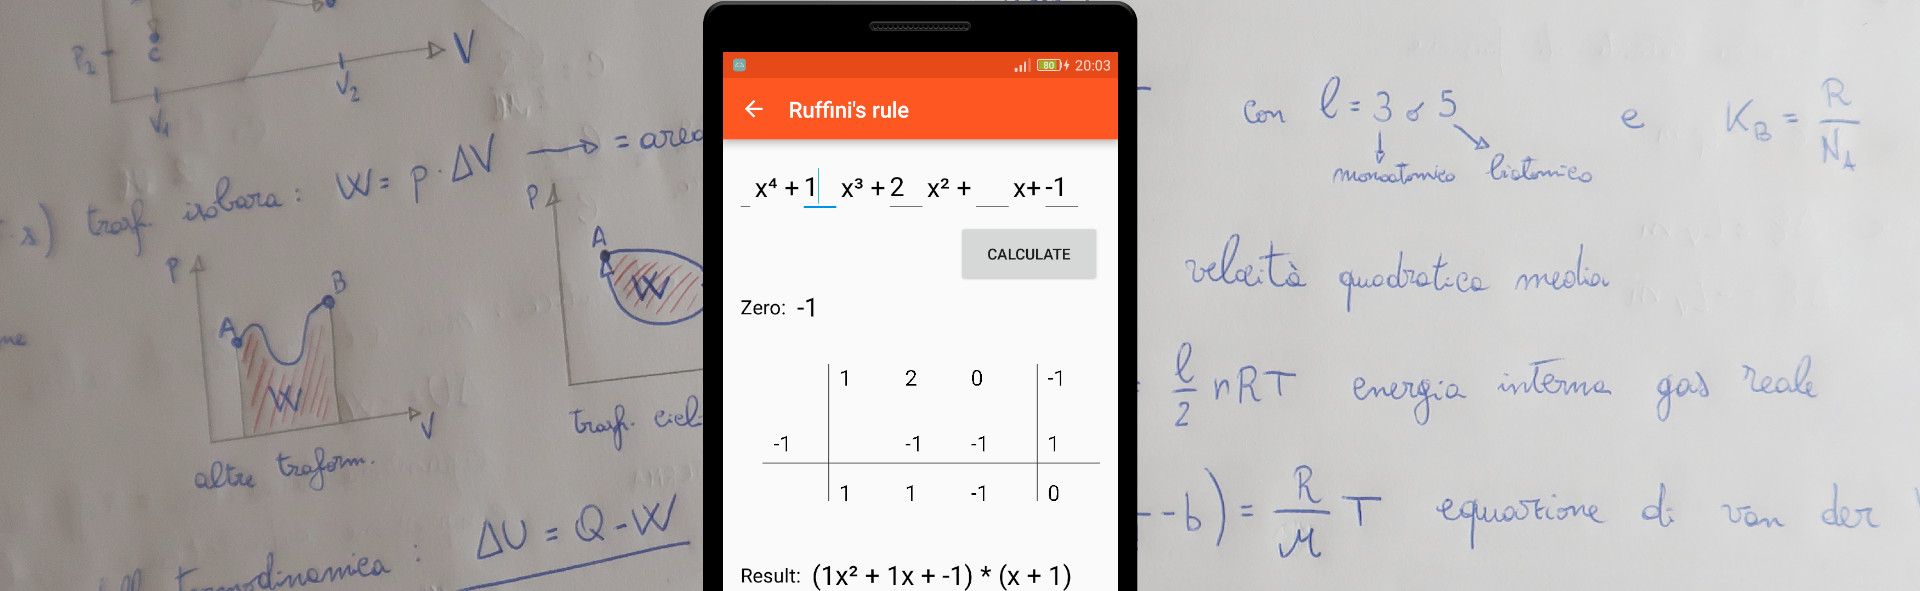 P₂
c
V
V₁
V₂
trasf. isobara : W = p · ΔV → = area
P
A
B
W
V
altre trasform.
P
A
W
trasf. cicl
ΔU = Q - W
termodinamica :
80 20:03
Ruffini's rule
x⁴ + 1 x³ + 2 x² + x+ -1
CALCULATE
Zero: -1
1 2 0 -1
-1 -1 -1 1
1 1 -1 0
Result: (1x² + 1x + -1) * (x + 1)
con l = 3 o 5 e K_B = R / N_A
monoatomico biatomico
velocità quadratica media
l/2 nRT energia interna gas reale
- b) = R/M T equazione di van der